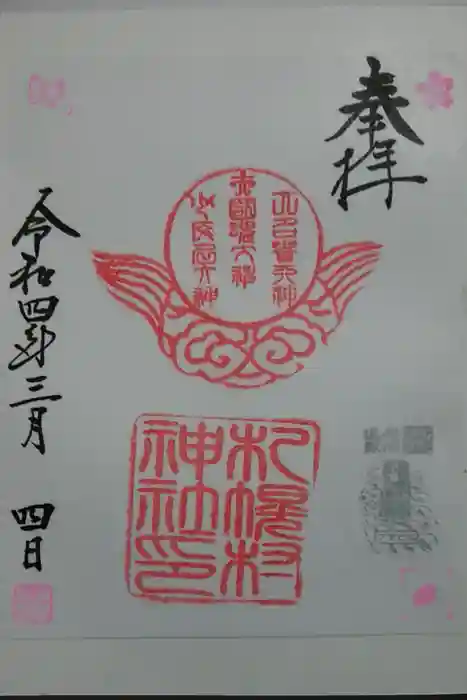 奉拝
大國魂大神
少彦名大神
札幌村
神社印
令和四年三月 四日